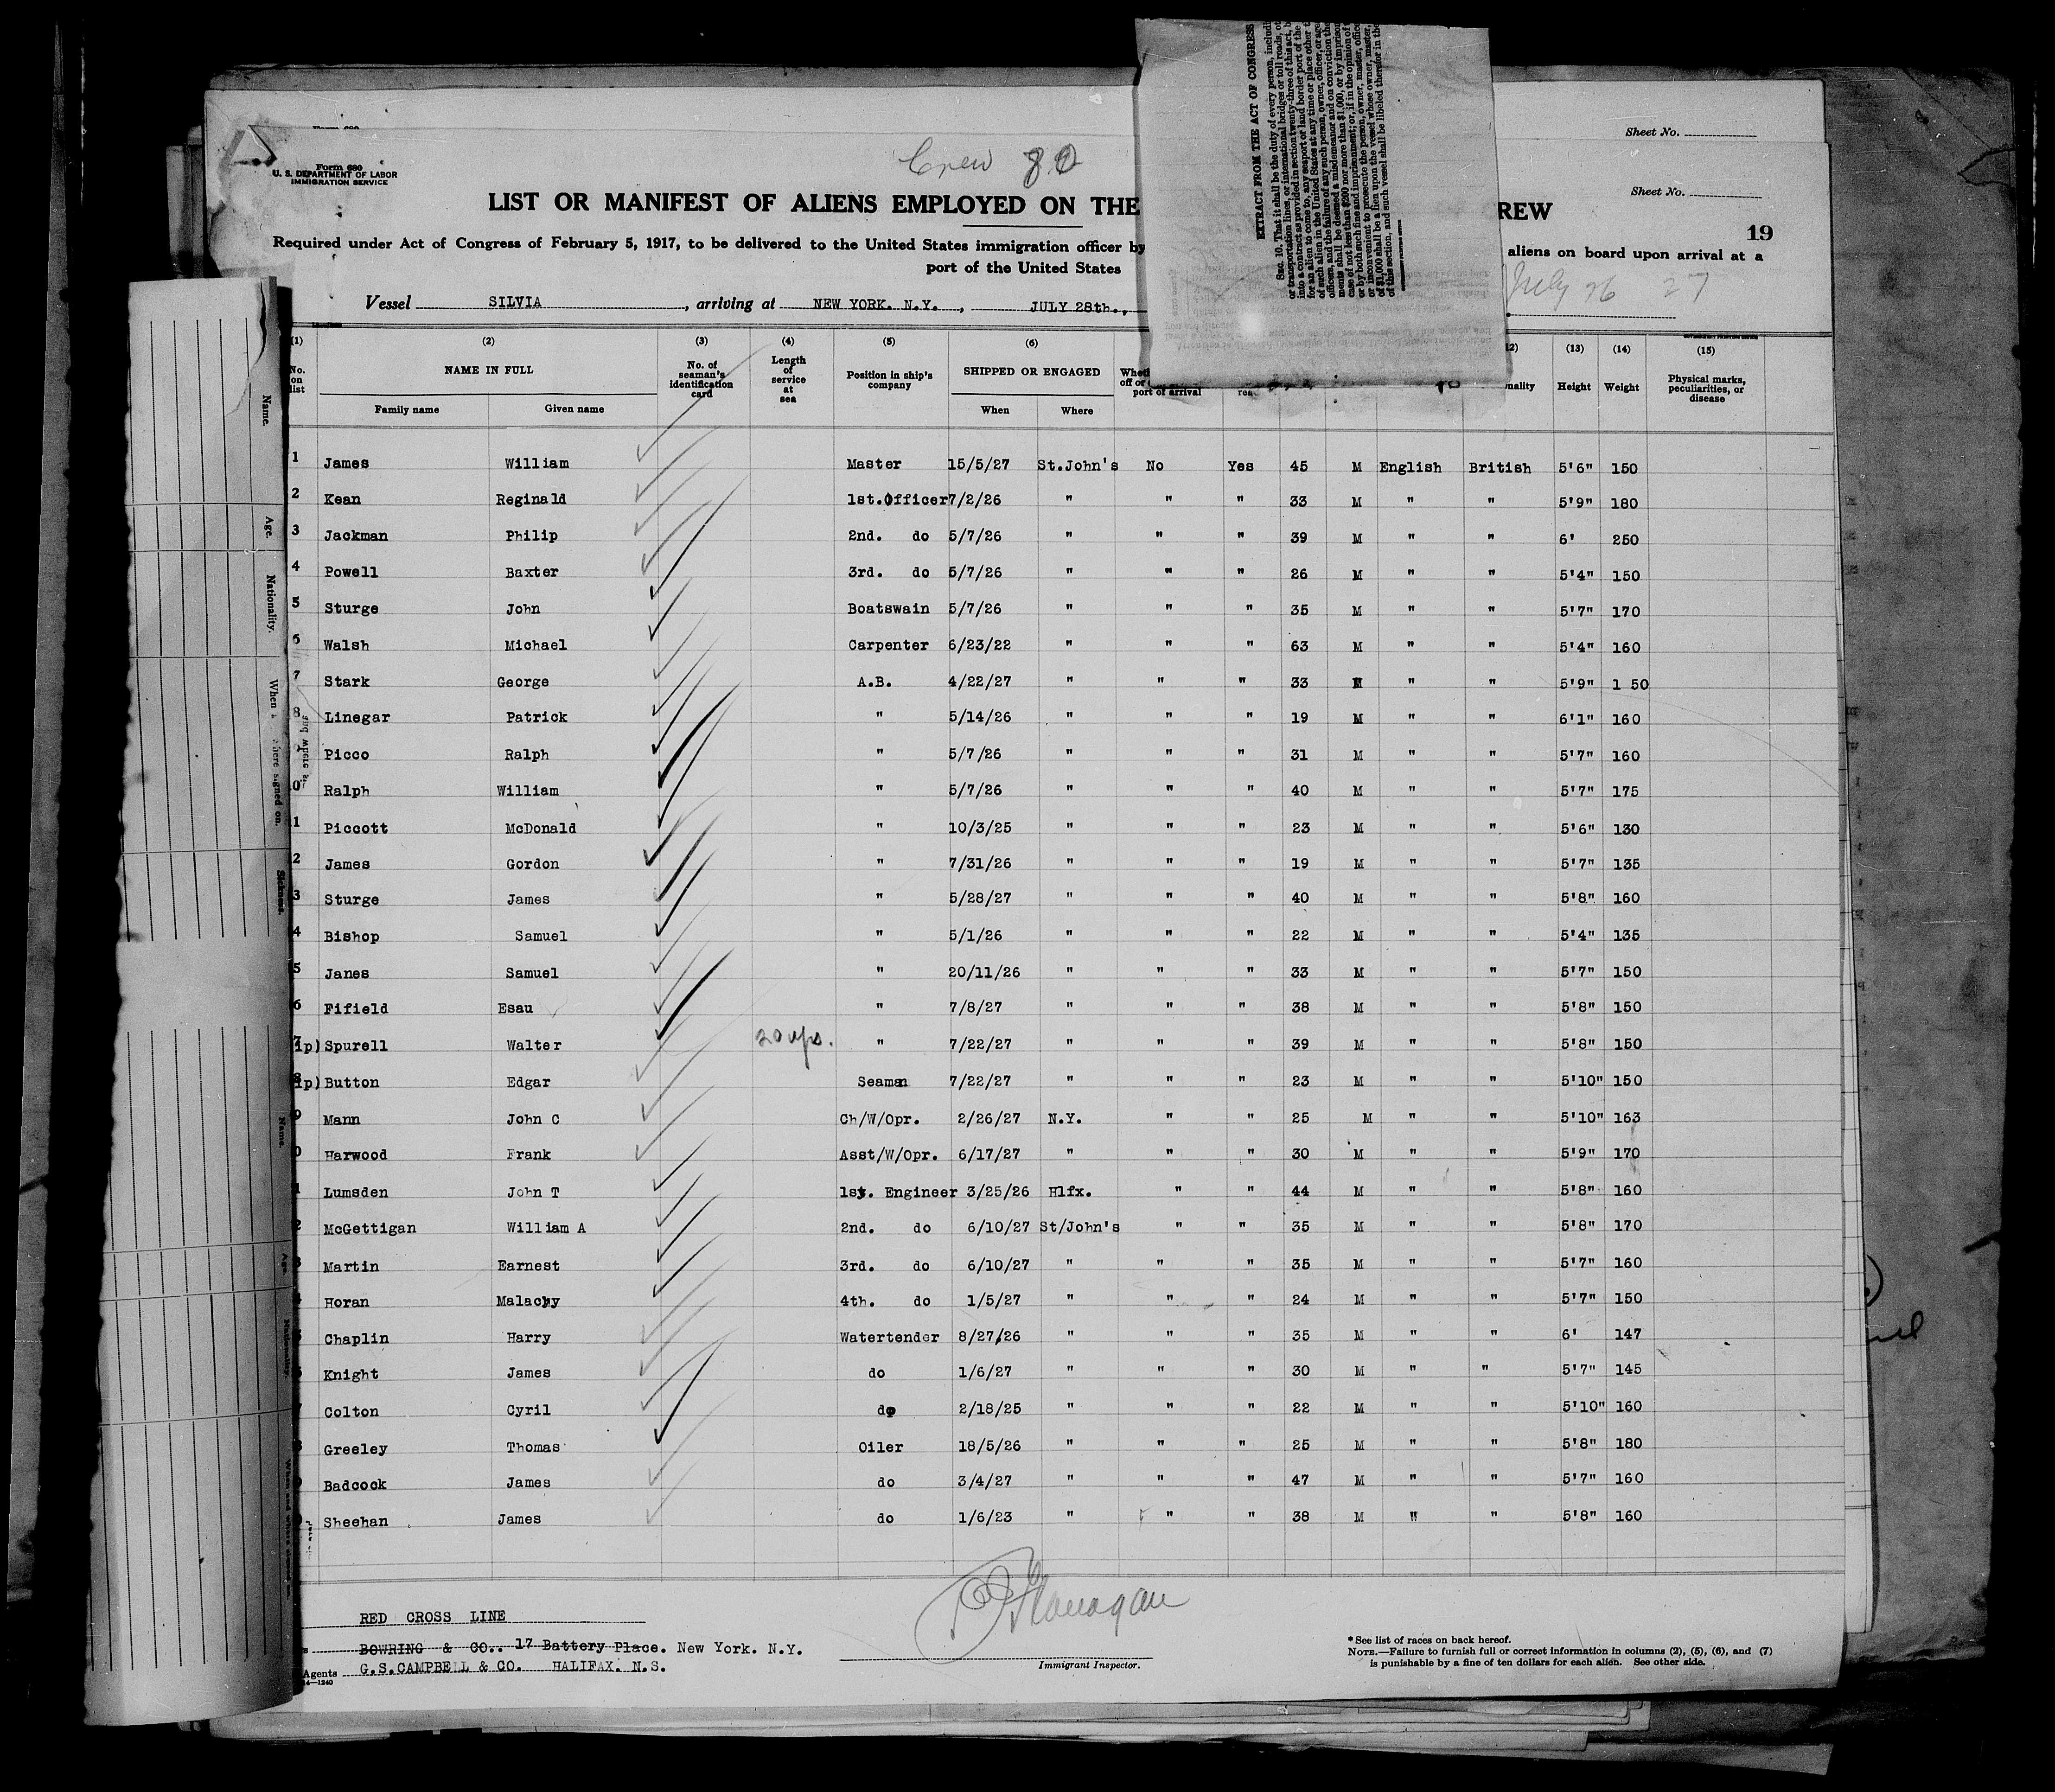 Crew 80
Form 680
U. S. DEPARTMENT OF LABOR
IMMIGRATION SERVICE
Sheet No.
Sheet No.
LIST OR MANIFEST OF ALIENS EMPLOYED ON THE REW
19
Required under Act of Congress of February 5, 1917, to be delivered to the United States immigration officer by aliens on board upon arrival at a
port of the United States
Vessel SILVIA, arriving at NEW YORK. N.Y., JULY 28th., July 26 27
EXTRACT FROM THE ACT OF CONGRESS
(1) (2) (3) (4) (5) (6) (13) (14) (15)
No. on list NAME IN FULL No. of seaman's identification card Length of service at sea Position in ship's company SHIPPED OR ENGAGED port of arrival Height Weight Physical marks, peculiarities, or disease
Family name Given name When Where
1 James William Master 15/5/27 St.John's No Yes 45 M English British 5'6" 150
2 Kean Reginald 1st.Officer 7/2/26 " " " 33 M " " 5'9" 180
3 Jackman Philip 2nd. do 5/7/26 " " " 39 M " " 6' 250
4 Powell Baxter 3rd. do 5/7/26 " " " 26 M " " 5'4" 150
5 Sturge John Boatswain 5/7/26 " " " 35 M " " 5'7" 170
6 Walsh Michael Carpenter 6/23/22 " " " 63 M " " 5'4" 160
7 Stark George A.B. 4/22/27 " " " 33 M " " 5'9" 1 50
8 Linegar Patrick " 5/14/26 " " " 19 M " " 6'1" 160
Picco Ralph " 5/7/26 " " " 31 M " " 5'7" 160
0 Ralph William " 5/7/26 " " " 40 M " " 5'7" 175
1 Piccott McDonald " 10/3/25 " " " 23 M " " 5'6" 130
2 James Gordon " 7/31/26 " " " 19 M " " 5'7" 135
3 Sturge James " 5/28/27 " " " 40 M " " 5'8" 160
4 Bishop Samuel " 5/1/26 " " " 22 M " " 5'4" 135
5 Janes Samuel " 20/11/26 " " " 33 M " " 5'7" 150
6 Fifield Esau " 7/8/27 " " " 38 M " " 5'8" 150
7 ip) Spurell Walter 20 yrs. " 7/22/27 " " " 39 M " " 5'8" 150
8 ip) Button Edgar Seaman 7/22/27 " " " 23 M " " 5'10" 150
9 Mann John C Ch/W/Opr. 2/26/27 N.Y. " " 25 M " " 5'10" 163
0 Harwood Frank Asst/W/Opr. 6/17/27 " " " 30 M " " 5'9" 170
1 Lumsden John T 1st. Engineer 3/25/26 Hlfx. " " 44 M " " 5'8" 160
2 McGettigan William A 2nd. do 6/10/27 St/John's " " 35 M " " 5'8" 170
3 Martin Earnest 3rd. do 6/10/27 " " " 35 M " " 5'7" 160
Horan Malachy 4th. do 1/5/27 " " " 24 M " " 5'7" 150
Chaplin Harry Watertender 8/27/26 " " " 35 M " " 6' 147
Knight James do 1/6/27 " " " 30 M " " 5'7" 145
Colton Cyril do 2/18/25 " " " 22 M " " 5'10" 160
Greeley Thomas Oiler 18/5/26 " " " 25 M " " 5'8" 180
Badcock James do 3/4/27 " " " 47 M " " 5'7" 160
Sheehan James do 1/6/23 " " " 38 M " " 5'8" 160
RED CROSS LINE
BOWRING & CO.. 17 Battery Place. New York. N.Y.
Agents G.S.CAMPBELL & CO. HALIFAX. N.S.
Flanagan
Immigrant Inspector.
*See list of races on back hereof.
NOTE.—Failure to furnish full or correct information in columns (2), (5), (6), and (7)
is punishable by a fine of ten dollars for each alien. See other side.
Name.
Age.
Nationality.
Sickness.
Name.